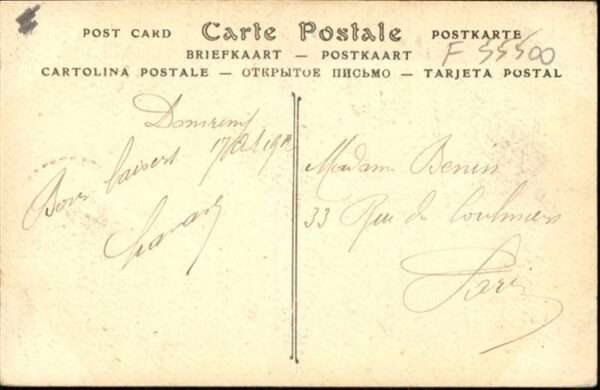 POST CARD Carte Postale POSTKARTE
BRIEFKAART — POSTKAART
CARTOLINA POSTALE — ОТКРЫТОЕ ПИСЬМО — TARJETA POSTAL
F 55500
Domremy
Bons baisers
Madame Benin
33 Rue de Coulmiers
Paris